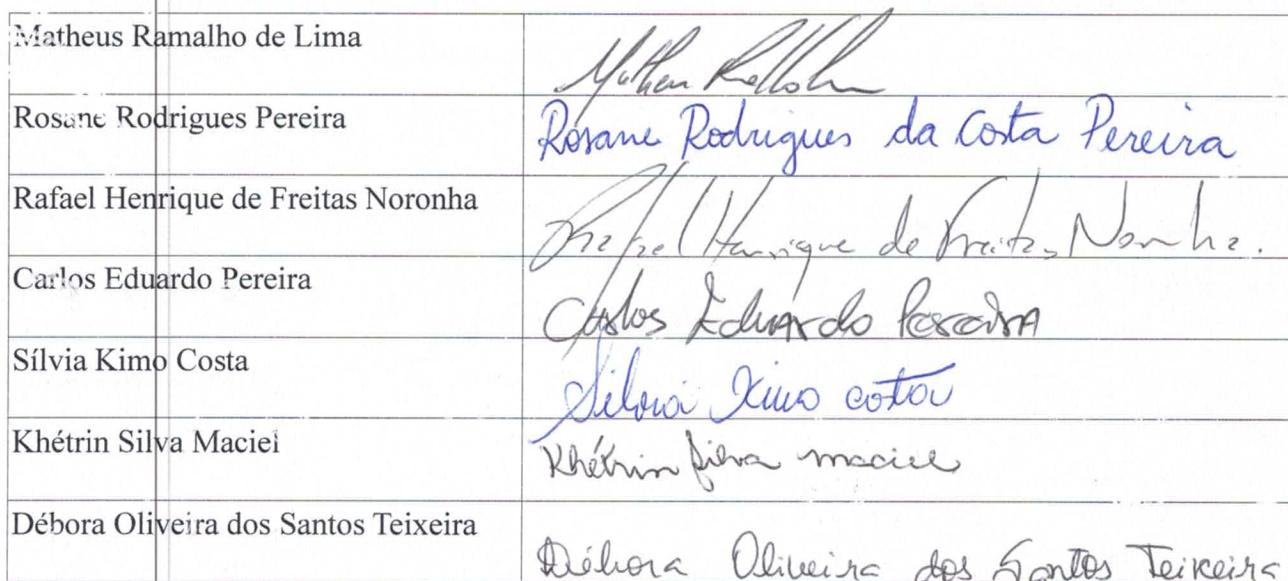 Matheus Ramalho de Lima
Rosane Rodrigues Pereira
Rosane Rodrigues da Costa Pereira
Rafael Henrique de Freitas Noronha
Rafael Henrique de Freitas Noronha.
Carlos Eduardo Pereira
Carlos Eduardo Pereira
Sílvia Kimo Costa
Silvia Kimo Costa
Khétrin Silva Maciel
Khétrin Silva Maciel
Débora Oliveira dos Santos Teixeira
Débora Oliveira dos Santos Teixeira